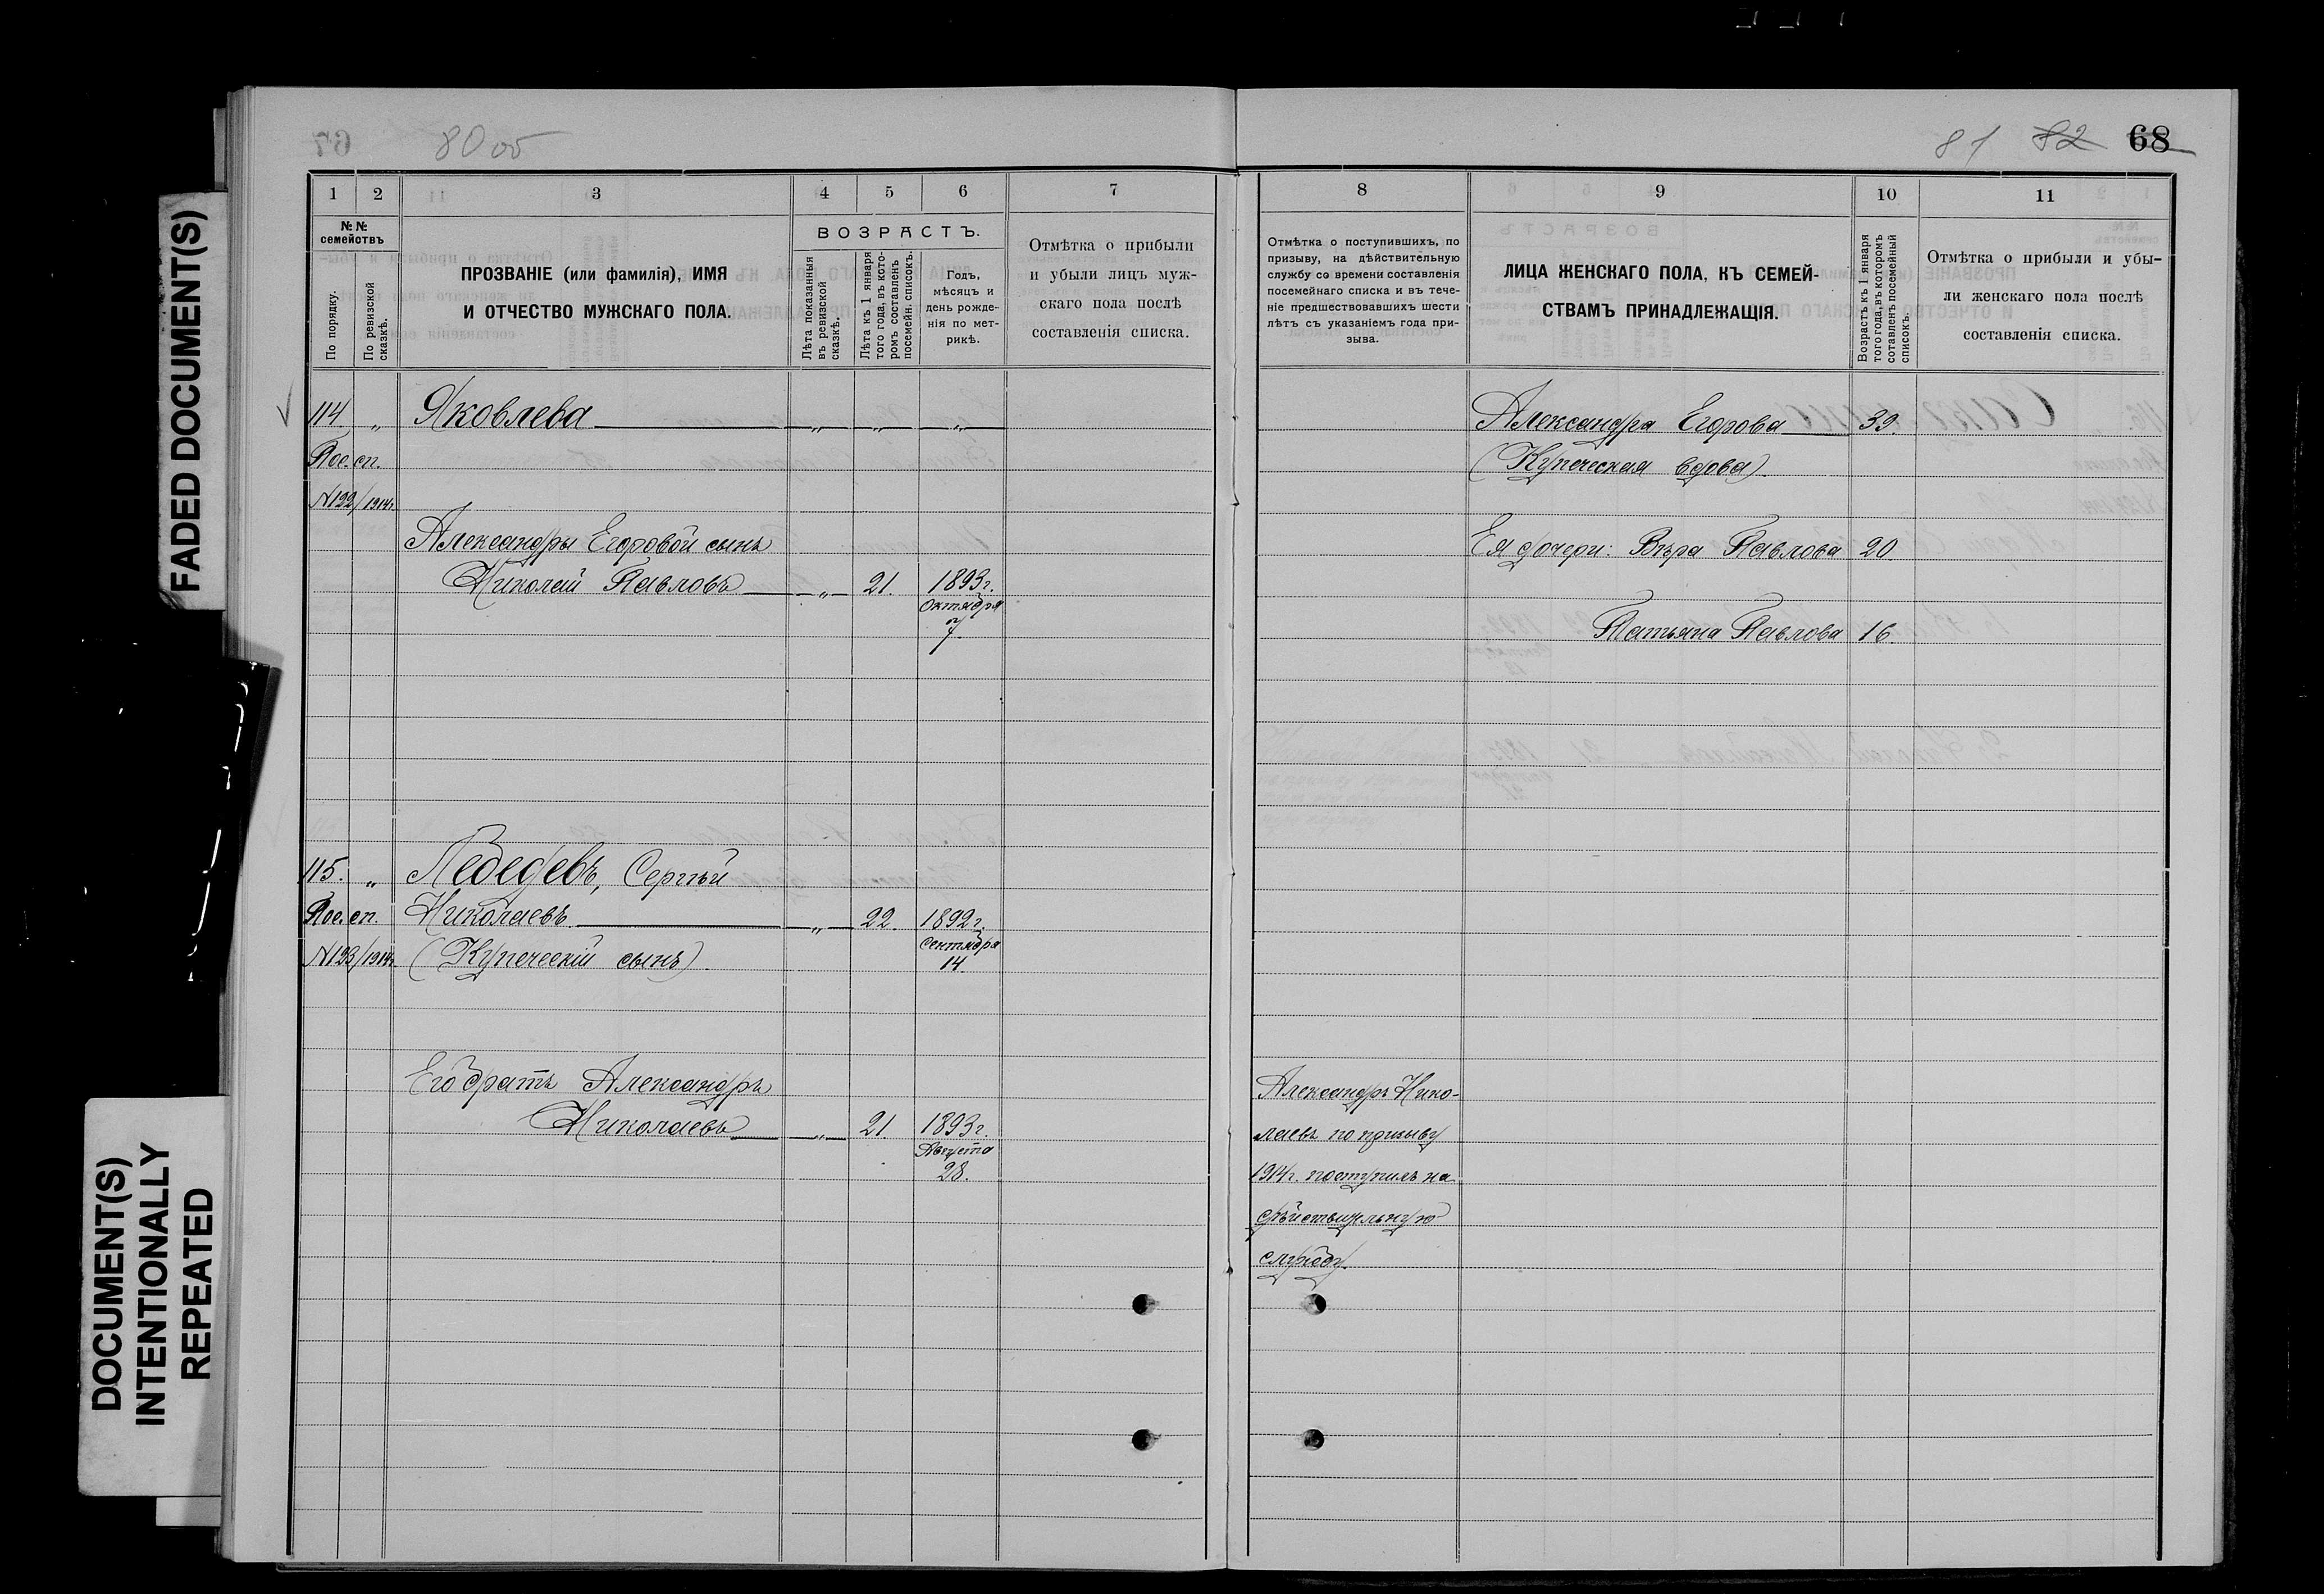 FADED DOCUMENT(S)
DOCUMENT(S)
INTENTIONALLY
REPEATED
80 об
1 2 3 4 5 6 7
№№
семействъ
По порядку.
По ревизской
сказкѣ.
ПРОЗВАНІЕ (или фамилія), ИМЯ
И ОТЧЕСТВО МУЖСКАГО ПОЛА.
ВОЗРАСТЪ.
Лѣта показанныя
въ ревизской
сказкѣ.
Лѣта къ 1 января
того года, въ кото-
ромъ составленъ
посемейн. списокъ.
Годъ,
мѣсяцъ и
день рожде-
нія по мет-
рикѣ.
Отмѣтка о прибыли
и убыли лицъ муж-
скаго пола послѣ
составленія списка.
114. „ Яковлева „ „ „
Пос. сп.
№122/1914г.
Александры Егоровой сынъ
Николай Павловъ „ 21. 1893г.
Октября
7.
115. „ Лебедевъ, Сергѣй
Пос. сп. Николаевъ „ 22. 1892г.
Сентября
№123/1914г. (Купеческій сынъ) 14.
Его братъ Александръ
Николаевъ „ 21. 1893г.
Августа
28.
81 82 68
8 9 10 11
Отмѣтка о поступившихъ, по
призыву, на дѣйствительную
службу со времени составленія
посемейнаго списка и въ тече-
ніе предшествовавшихъ шести
лѣтъ съ указаніемъ года при-
зыва.
ЛИЦА ЖЕНСКАГО ПОЛА, КЪ СЕМЕЙ-
СТВАМЪ ПРИНАДЛЕЖАЩІЯ.
Возрастъ къ 1 января
того года, въ которомъ
сотавленъ посемейный
списокъ.
Отмѣтка о прибыли и убы-
ли женскаго пола послѣ
составленія списка.
Александра Егорова 39.
(Купеческая вдова).
Ея дочери: Вѣра Павлова 20.
Татьяна Павлова 16.
Александръ Нико-
лаевъ по призыву
1914г. поступилъ на
дѣйствительную
службу.